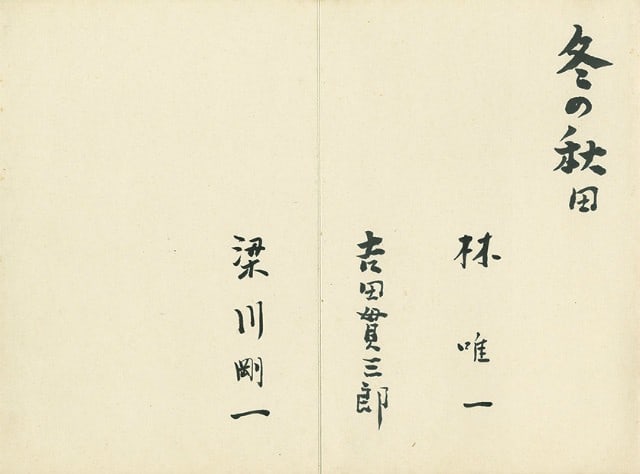 冬の秋田
林唯一
吉田貫三郎
梁川剛一